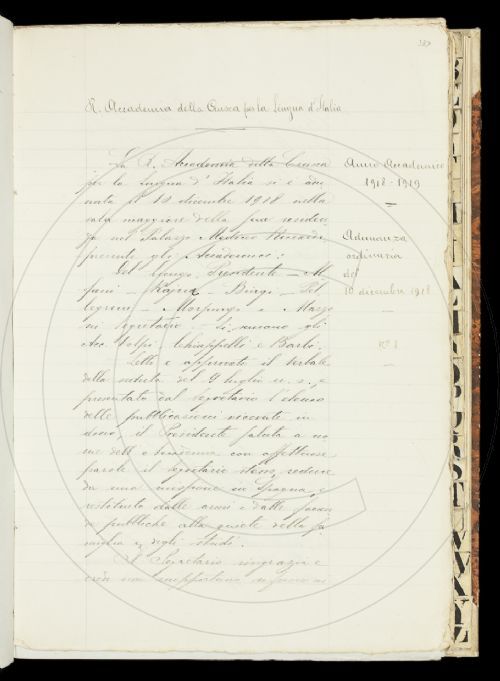 R. Accademia della Crusca per la Lingua d'Italia
La R. Accademia della Crusca
per la Lingua d'Italia si è adu
nata il 10 dicembre 1918 nella
sala maggiore della sua residen
za nel Palazzo Mediceo Riccardi,
presenti gli Accademici:
Del Lungo, Presidente — 
— Rajna — — Pel
legrini — Morpurgo e Mazzo
ni Segretario. — Si scusano gli
Acc. Volpi, Chiappelli e Barbi.
Letto e approvato il verbale
della seduta del 9 luglio u. s., e
presentato dal Segretario l'elenco
delle pubblicazioni ricevute in
dono, il Presidente saluta a no
me dell'adunanza con affettuose
parole il Segretario stesso, reduce
da una missione in e
restituito dalle armi e dalle
pubbliche alla quiete della fa
miglia e degli studi.
Il Segretario ringrazia e
Anno Accademico
1918-1919
Adunanza
ordinaria
del
10 dicembre 1918
N.º 1